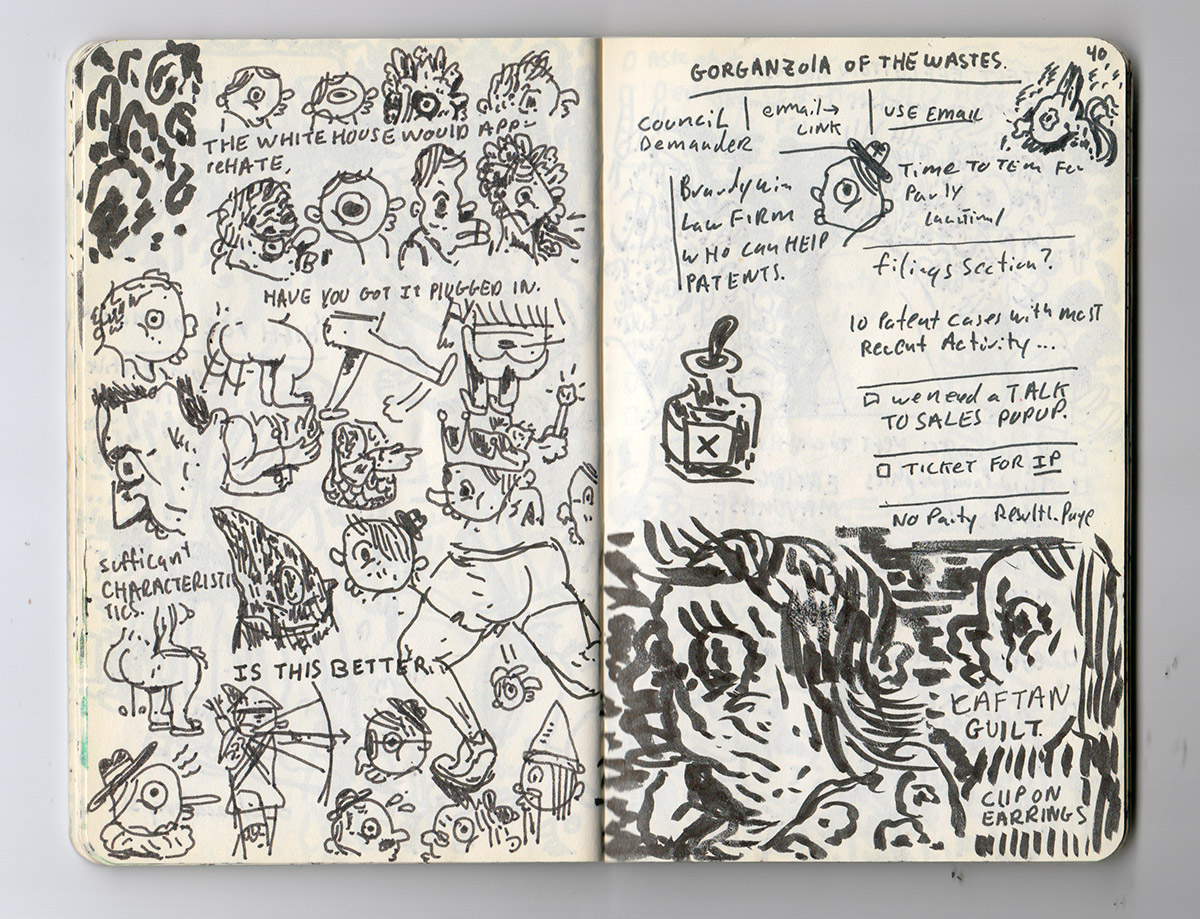 THE WHITE HOUSE WOULD APP-
reHATE,
HAVE YOU GOT IT PLUGGED IN.
sufficant
CHARACTERISTIC
TICS.
IS THIS BETTER.
40
GORGANZOLA OF THE WASTES.
COUNCIL
Demander
email→
LINK
USE EMAIL
Time TO
Party
Brandywin
Law FIRM
WHO CAN HELP
PATENTS.
filings Section?
10 Patent Cases with most
Recent Activity...
we need a TALK
TO SALES POPUP.
TICKET FOR IP
NO Party Result. Page
X
KAFTAN
GUILT.
CLIP ON
EARRINGS